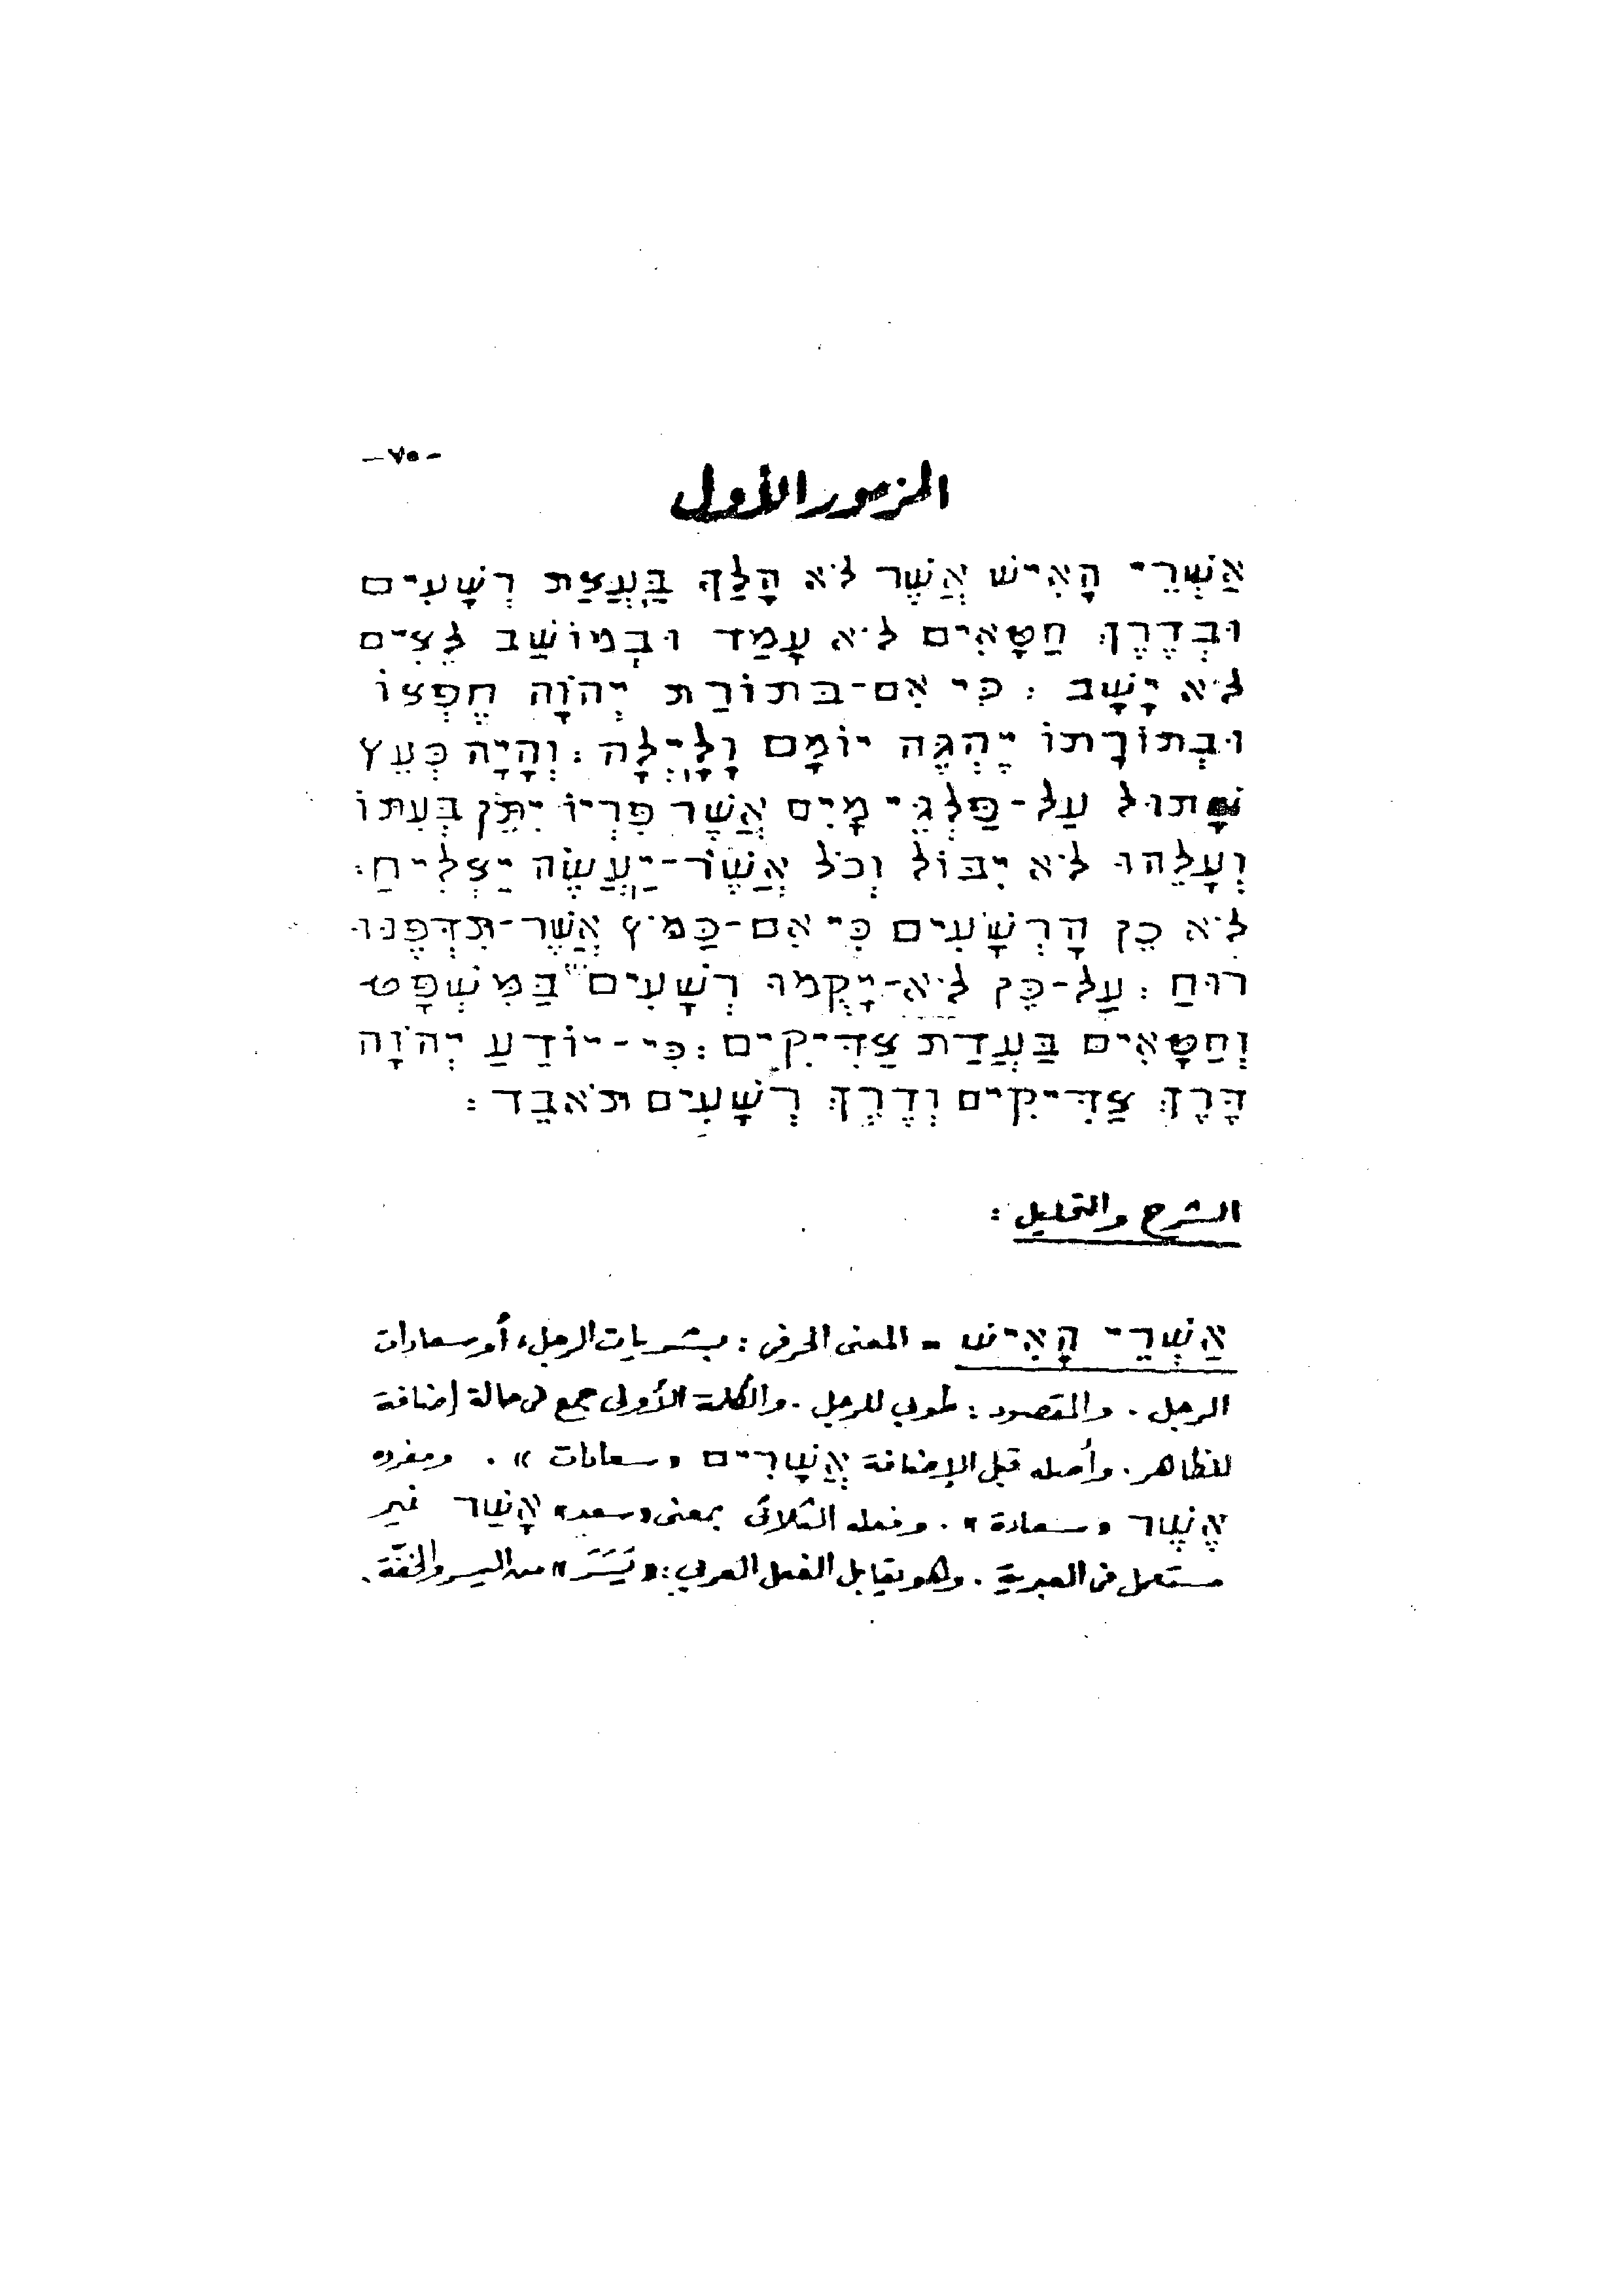 -٧٥-
المزمور الأول
אַשְׁרֵי הָאִישׁ אֲשֶׁר לֹא הָלַךְ בַּעֲצַת רְשָׁעִים
וּבְדֶרֶךְ חַטָּאִים לֹא עָמַד וּבְמוֹשַׁב לֵצִים
לֹא יָשָׁב : כִּי אִם-בתוֹרַת יְהֹוָה חֶפְצוֹ
וּבְתוֹרָתוֹ יֶהְגֶּה יוֹמָם וָלָיְלָה : וְהָיָה כְּעֵץ
שָׁתוּל עַל-פַּלְגֵי מָיִם אֲשֶׁר פִּרְיוֹ יִתֵּן בְּעִתּוֹ
וְעָלֵהוּ לֹא יִבּוֹל וְכֹל אֲשֶׁר-יַעֲשֶׂה יַצְלִיחַ :
לֹא כֵן הָרְשָׁעִים כִּי אִם-כַּמֹּץ אֲשֶׁר-תִּדְּפֶנּוּ
רוּחַ : עַל-כֵּן לֹא-יָקֻמוּ רְשָׁעִים בַּמִּשְׁפָּט-
וְחַטָּאִים בַּעֲדַת צַדִּיקִים : כִּי-יוֹדֵעַ יְהֹוָה
דֶּרֶךְ צַדִּיקִים וְדֶרֶךְ רְשָׁעִים תֹּאבֵד :
الشرح والتحليل :
אַשְׁרֵי הָאִישׁ - المعنى الحرفى : بشريات الرجل، أو سعادات
الرجل . والمقصود : طوبى للرجل . والكلمة الأولى جمع فى حالة إضافة
للظاهر . وأصله قبل الإضافة אֲשָׁרִים « سعادات » . ومفرده
אֶשֶׁר « سعادة » . وفعله الثلاثى بمعنى « سعد » אָשַׁר غير
مستعمل فى العبرية . وهو يقابل الفعل العربى : « يَسَرَ » من اليسر والخفّة .